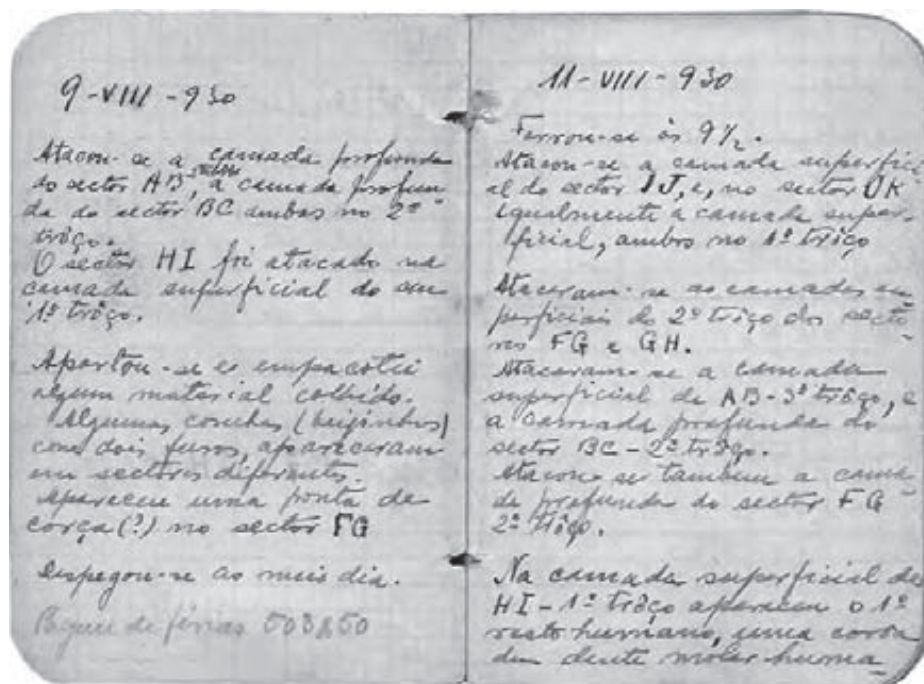 9-VIII-930
Atacou-se a camada profunda
do sector AB, a camada profun
da do sector BC ambas no 2º
trôço.
O sector HI foi atacado na
camada superficial do seu
1º trôço.
Apartou-se e empacotei
algum material colhido.
Algumas conchas (beiginhos)
com dois furos, apareceram
em sectores diferentes.
Apareceu uma ponta de
corça(?) no sector FG
Despegou-se ao meio dia.
Paguei de férias 503$50
11-VIII-930
Ferrou-se às 9½.
Atacou-se a camada superfici
al do sector IJ, e, no sector JK
igualmente a camada super-
ficial, ambos no 1º trôço
Atacaram-se as camadas su
perficiais do 2º trôço dos secto
res FG e GH.
Atacaram-se a camada
superficial de AB-3º trôço, e
a camada profunda do
sector BC-2º trôço.
Atacou-se tambem a cama
da profunda do sector FG
2º trôço.
Na camada superficial de
HI-1º trôço apareceu o 1º
resto humano, uma coroa
dum dente molar huma